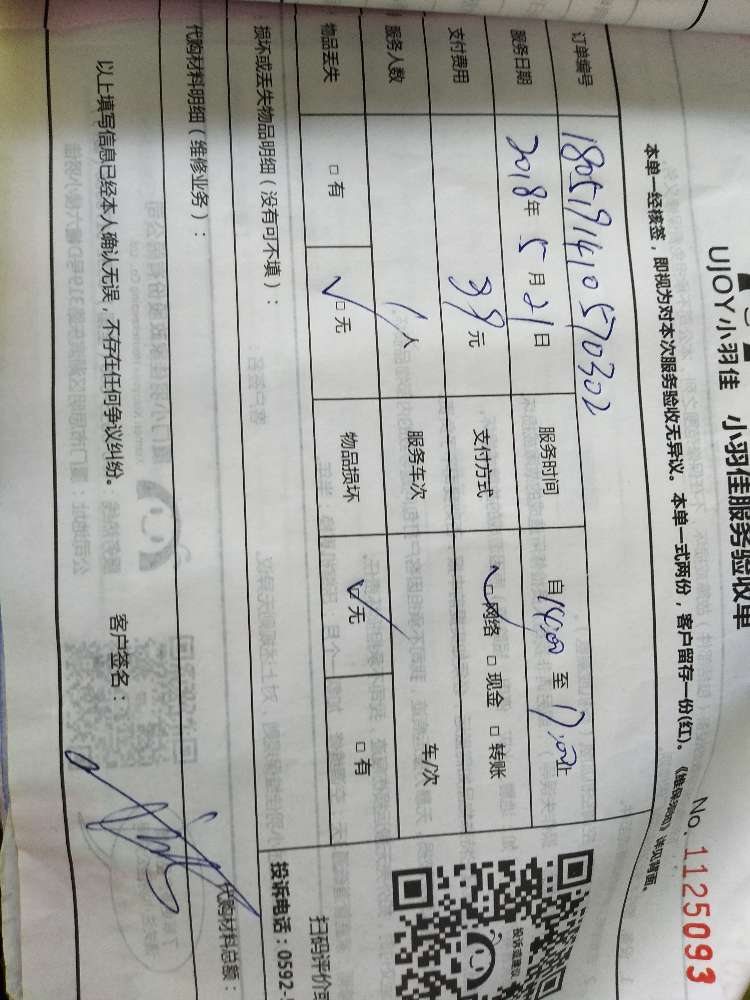 UJOY小羽佳 小羽佳服务验收单
No. 1125093
本单一经核签，即视为对本次服务验收无异议。本单一式两份，客户留存一份(红)。《维保须知》详见背面。
订单编号 1805191410570302 服务时间 自14:00 至 17:00止
服务日期 2018年 5月21日 支付方式 网络 □ 现金 □ 转账
支付费用 39元
服务人数 1人 服务车次 车/次
物品丢失 □ 有 □ 无 物品损坏 □ 无 □ 有
损坏或丢失物品明细（没有可不填）：
代购材料明细（维修业务）：
代购材料总额：
以上填写信息已经本人确认无误，不存在任何争议纠纷。 客户签名：
投诉或建议
扫码评价或
投诉电话：0592-